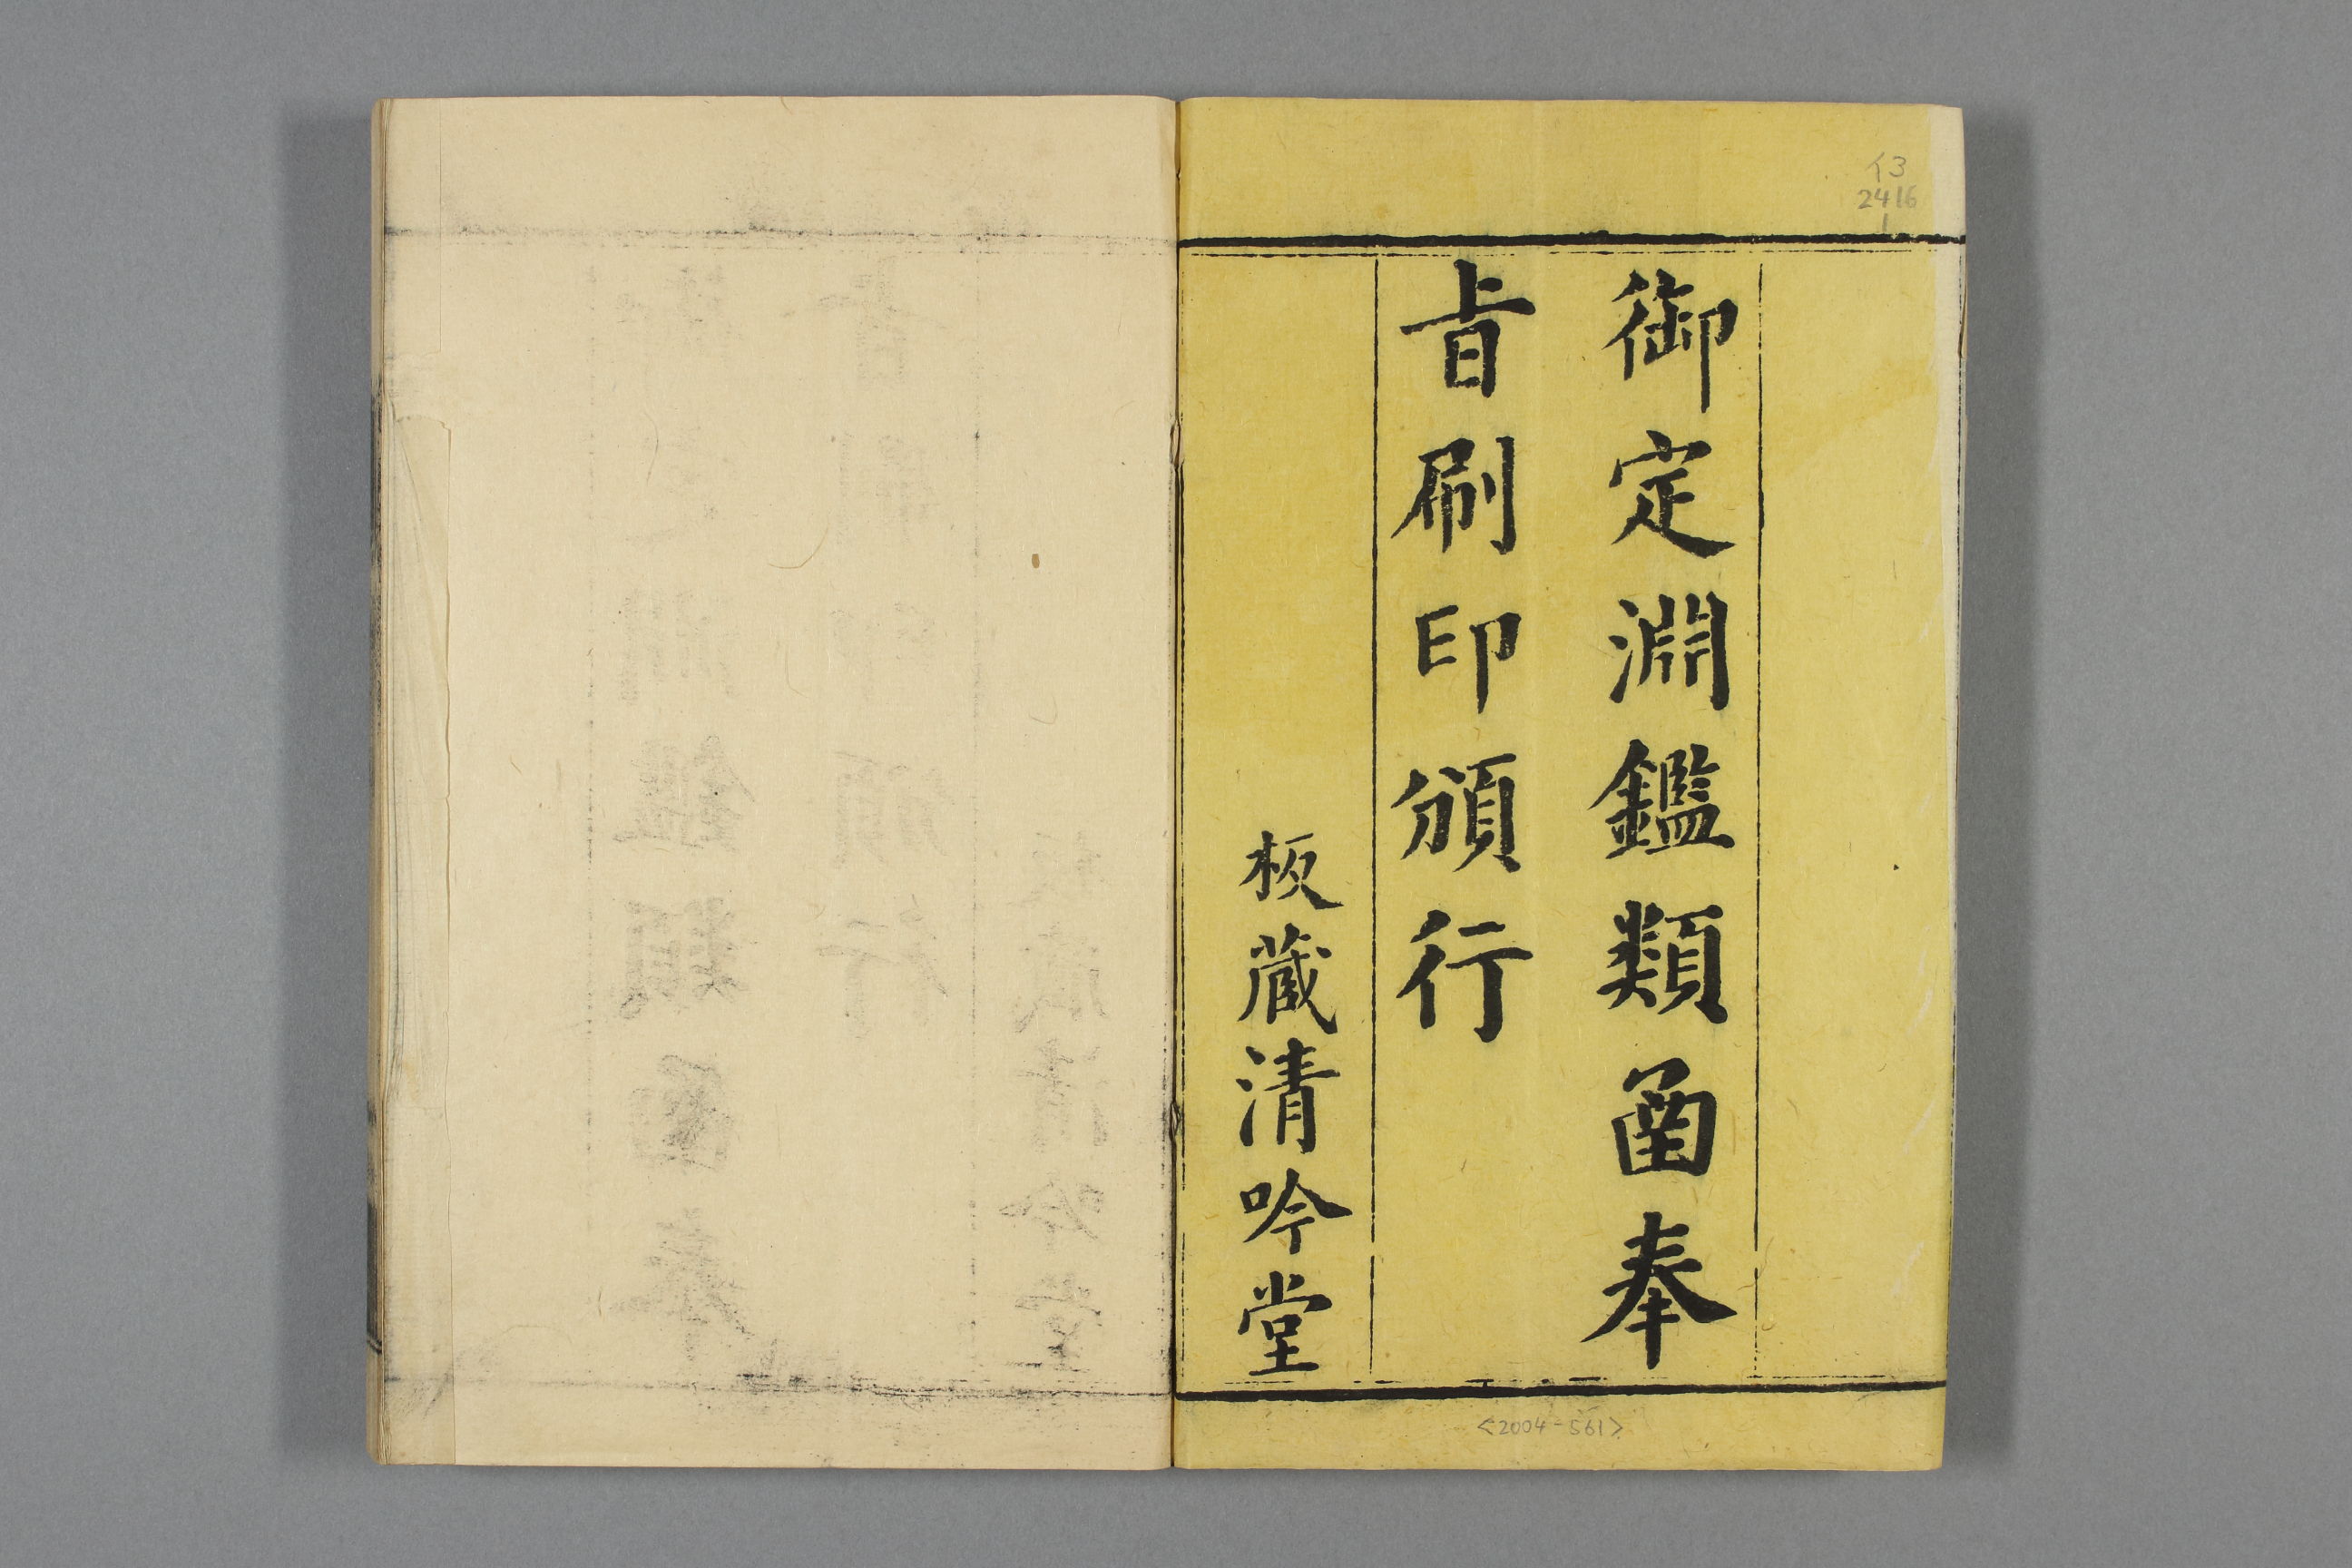 御定淵鑑類凾奉
旨刷印頒行
板蔵清吟堂
イ3
2416
1
<2004-561>